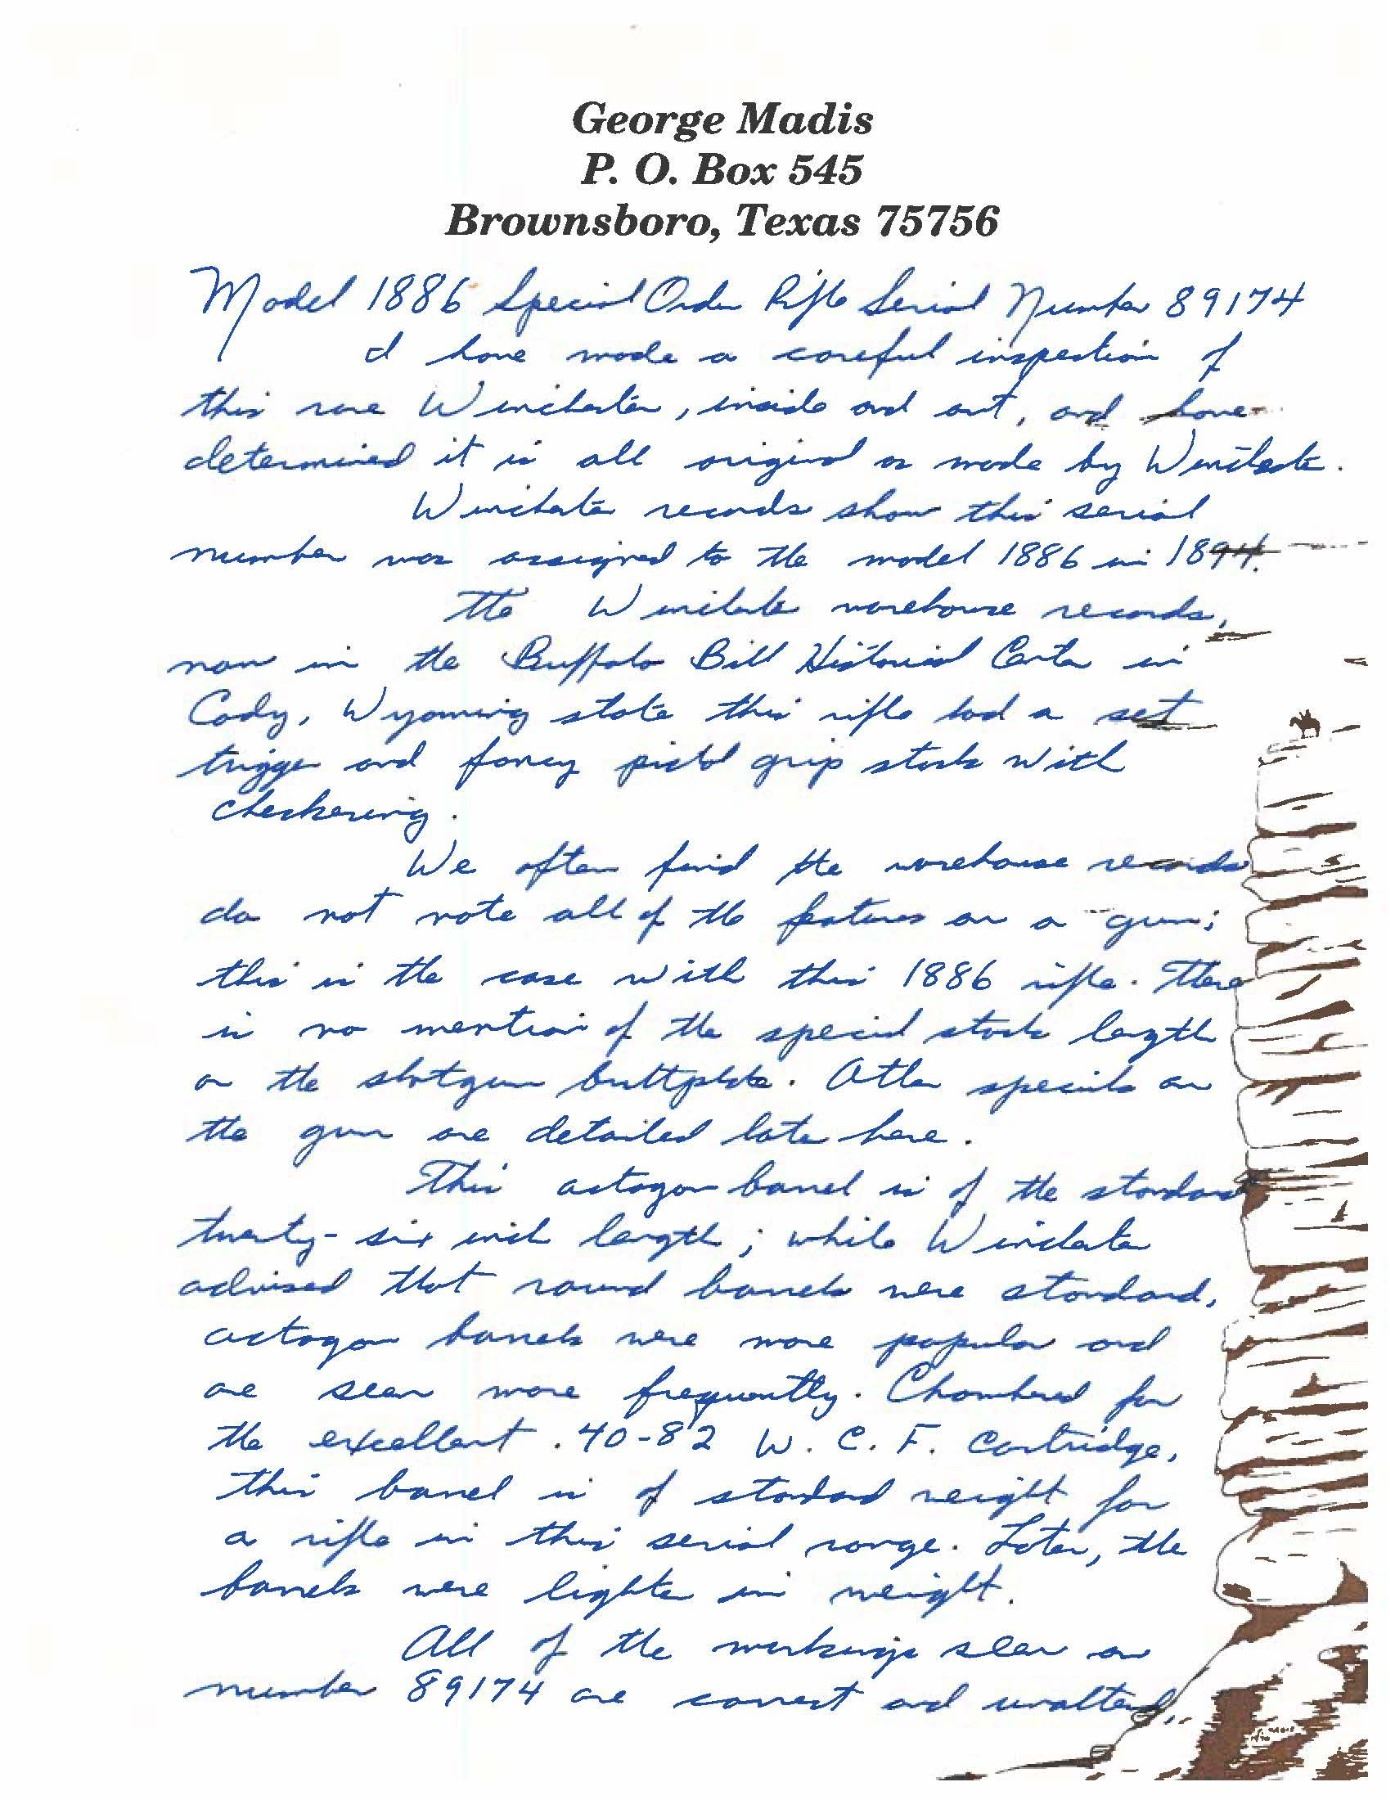 George Madis
P. O. Box 545
Brownsboro, Texas 75756
Model 1886 Special Order Rifle Serial Number 89174
I have made a careful inspection of
this rare Winchester, inside and out, and have
determined it is all original as made by Winchester.
Winchester records show this serial
number was assigned to the model 1886 in 1894.
The Winchester warehouse records,
now in the Buffalo Bill Historical Center in
Cody, Wyoming state this rifle had a set
trigger and fancy pistol grip stock with
checkering.
We often find the warehouse records
do not note all of the features on a gun;
this is the case with this 1886 rifle. There
is no mention of the special stock length
or the shotgun buttplate. Other specials on
the gun are detailed later here.
This octagon barrel is of the standard
twenty-six inch length; while Winchester
advised that round barrels were standard,
octagon barrels were more popular and
are seen more frequently. Chambered for
the excellent .40-82 W. C. F. cartridge,
this barrel is of standard weight for
a rifle in this serial range. Later, the
barrels were lighter in weight.
All of the markings seen on
number 89174 are correct and unaltered,